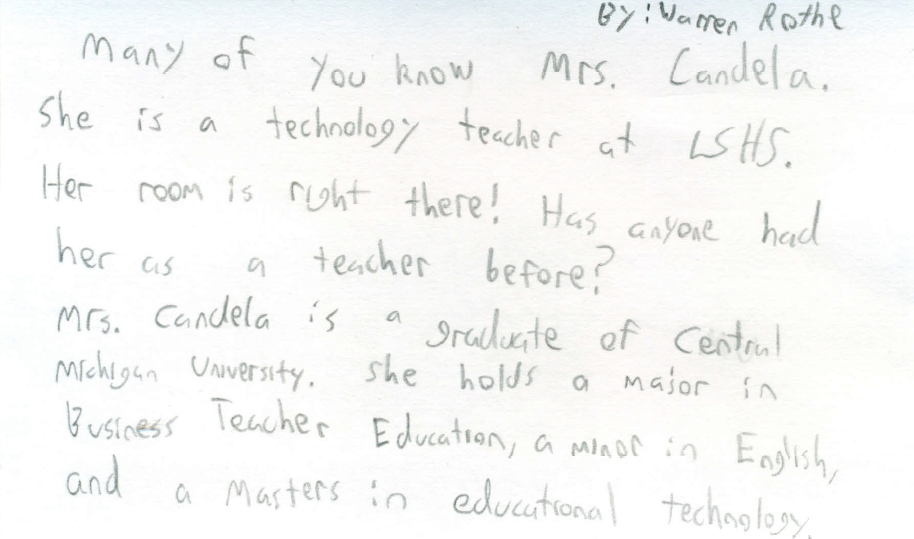 By: Warren Rothe
Many of you know Mrs. Candela.
She is a technology teacher at LSHS.
Her room is right there! Has anyone had
her as a teacher before?
Mrs. Candela is a graduate of Central
Michigan University. She holds a major in
Business Teacher Education, a minor in English,
and a Masters in educational technology.